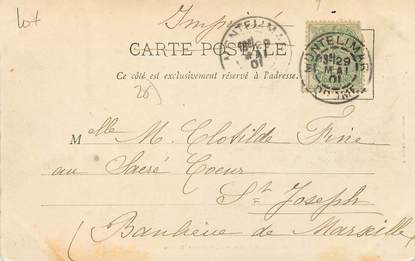 Lot
Imprimé
CARTE POSTALE
Ce côté est exclusivement réservé à l'adresse.
MONTELIMAR
29
MAI
01
MONTELIMAR
29
MAI
01
DROME
(26)
Melle M. Clotilde Fine
au Sacré Coeur
St Joseph
(Banlieue de Marseille)